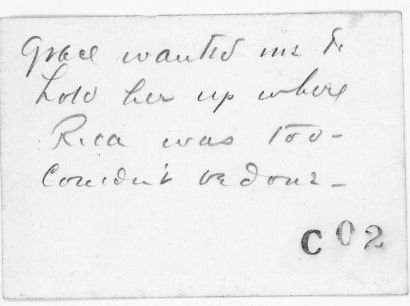 Grace wanted me to
hold her up where
Rica was too -
Couldn't be done -
C02